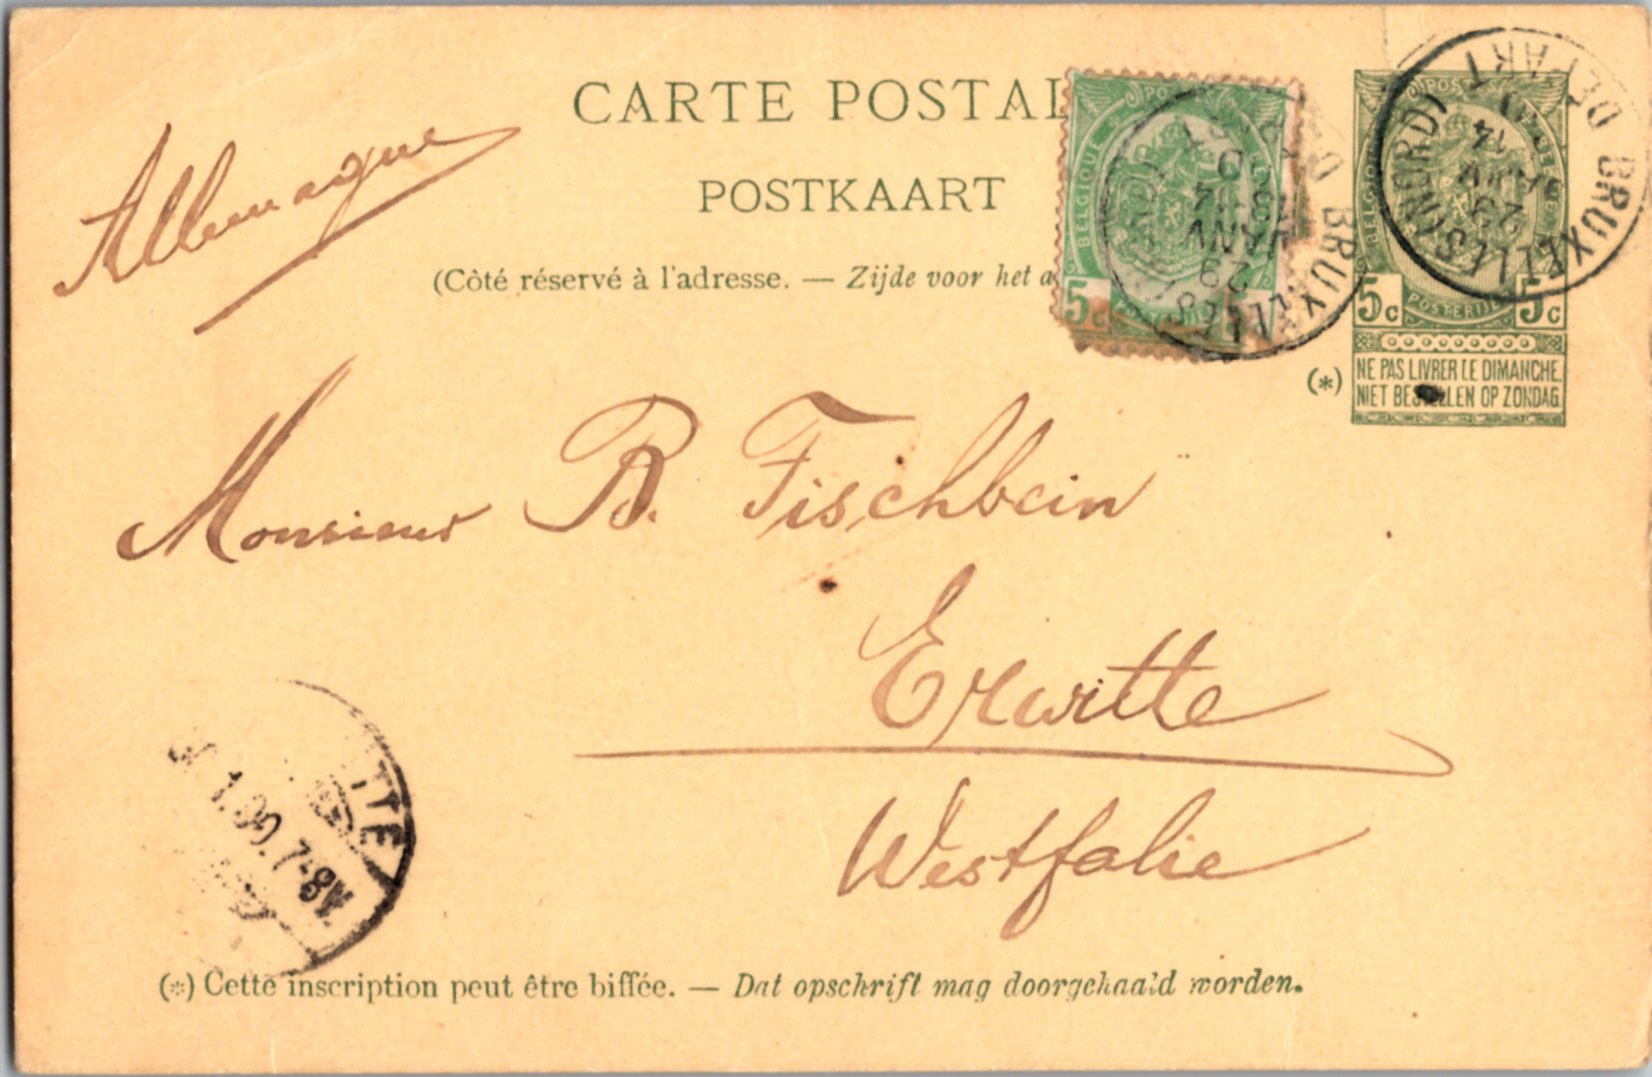 CARTE POSTAL
POSTKAART
(Côté réservé à l'adresse. — Zijde voor het a
Allemagne
BELGIQUE
POSTERIJEN
5c
BRUXELLES (NORD)
DÉPART
29
JANV
14
5c 5c
NE PAS LIVRER LE DIMANCHE.
NIET BESTELLEN OP ZONDAG.
(*)
BRUXELLES (NORD)
DÉPART
29
JANV
14
Monsieur B. Fischbein
Erwitte
Westfalie
TTE
1.00.7-8V.
(*) Cette inscription peut être biffée. — Dat opschrift mag doorgehaald worden.